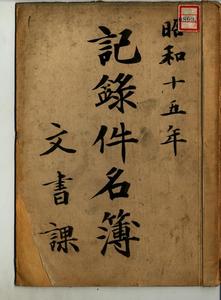 昭和十五年
記録件名簿
文書課